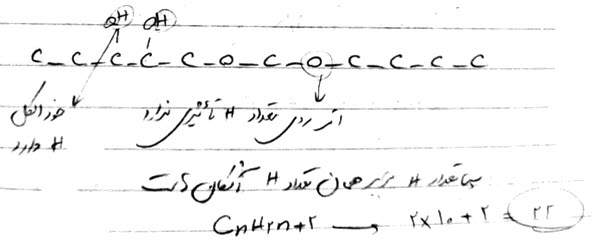 OH OH
C - C - C - C - C - O - C - O - C - C - C - C
خود الکل H دارد
اتر روی تعداد H تأثیری ندارد
پس تعداد H برابر همان تعداد H آلکان است
CnH2n+2 → 2×10+2 = 22